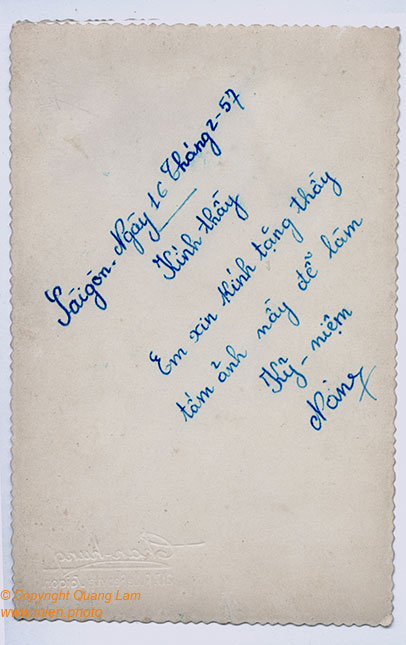 Sàigòn. Ngày 16 Tháng 2-57
Kính thầy
Em xin kính tặng thầy
tấm ảnh này để làm
Kỷ-niệm
© Copyright Quang Lam
www.mien.photo